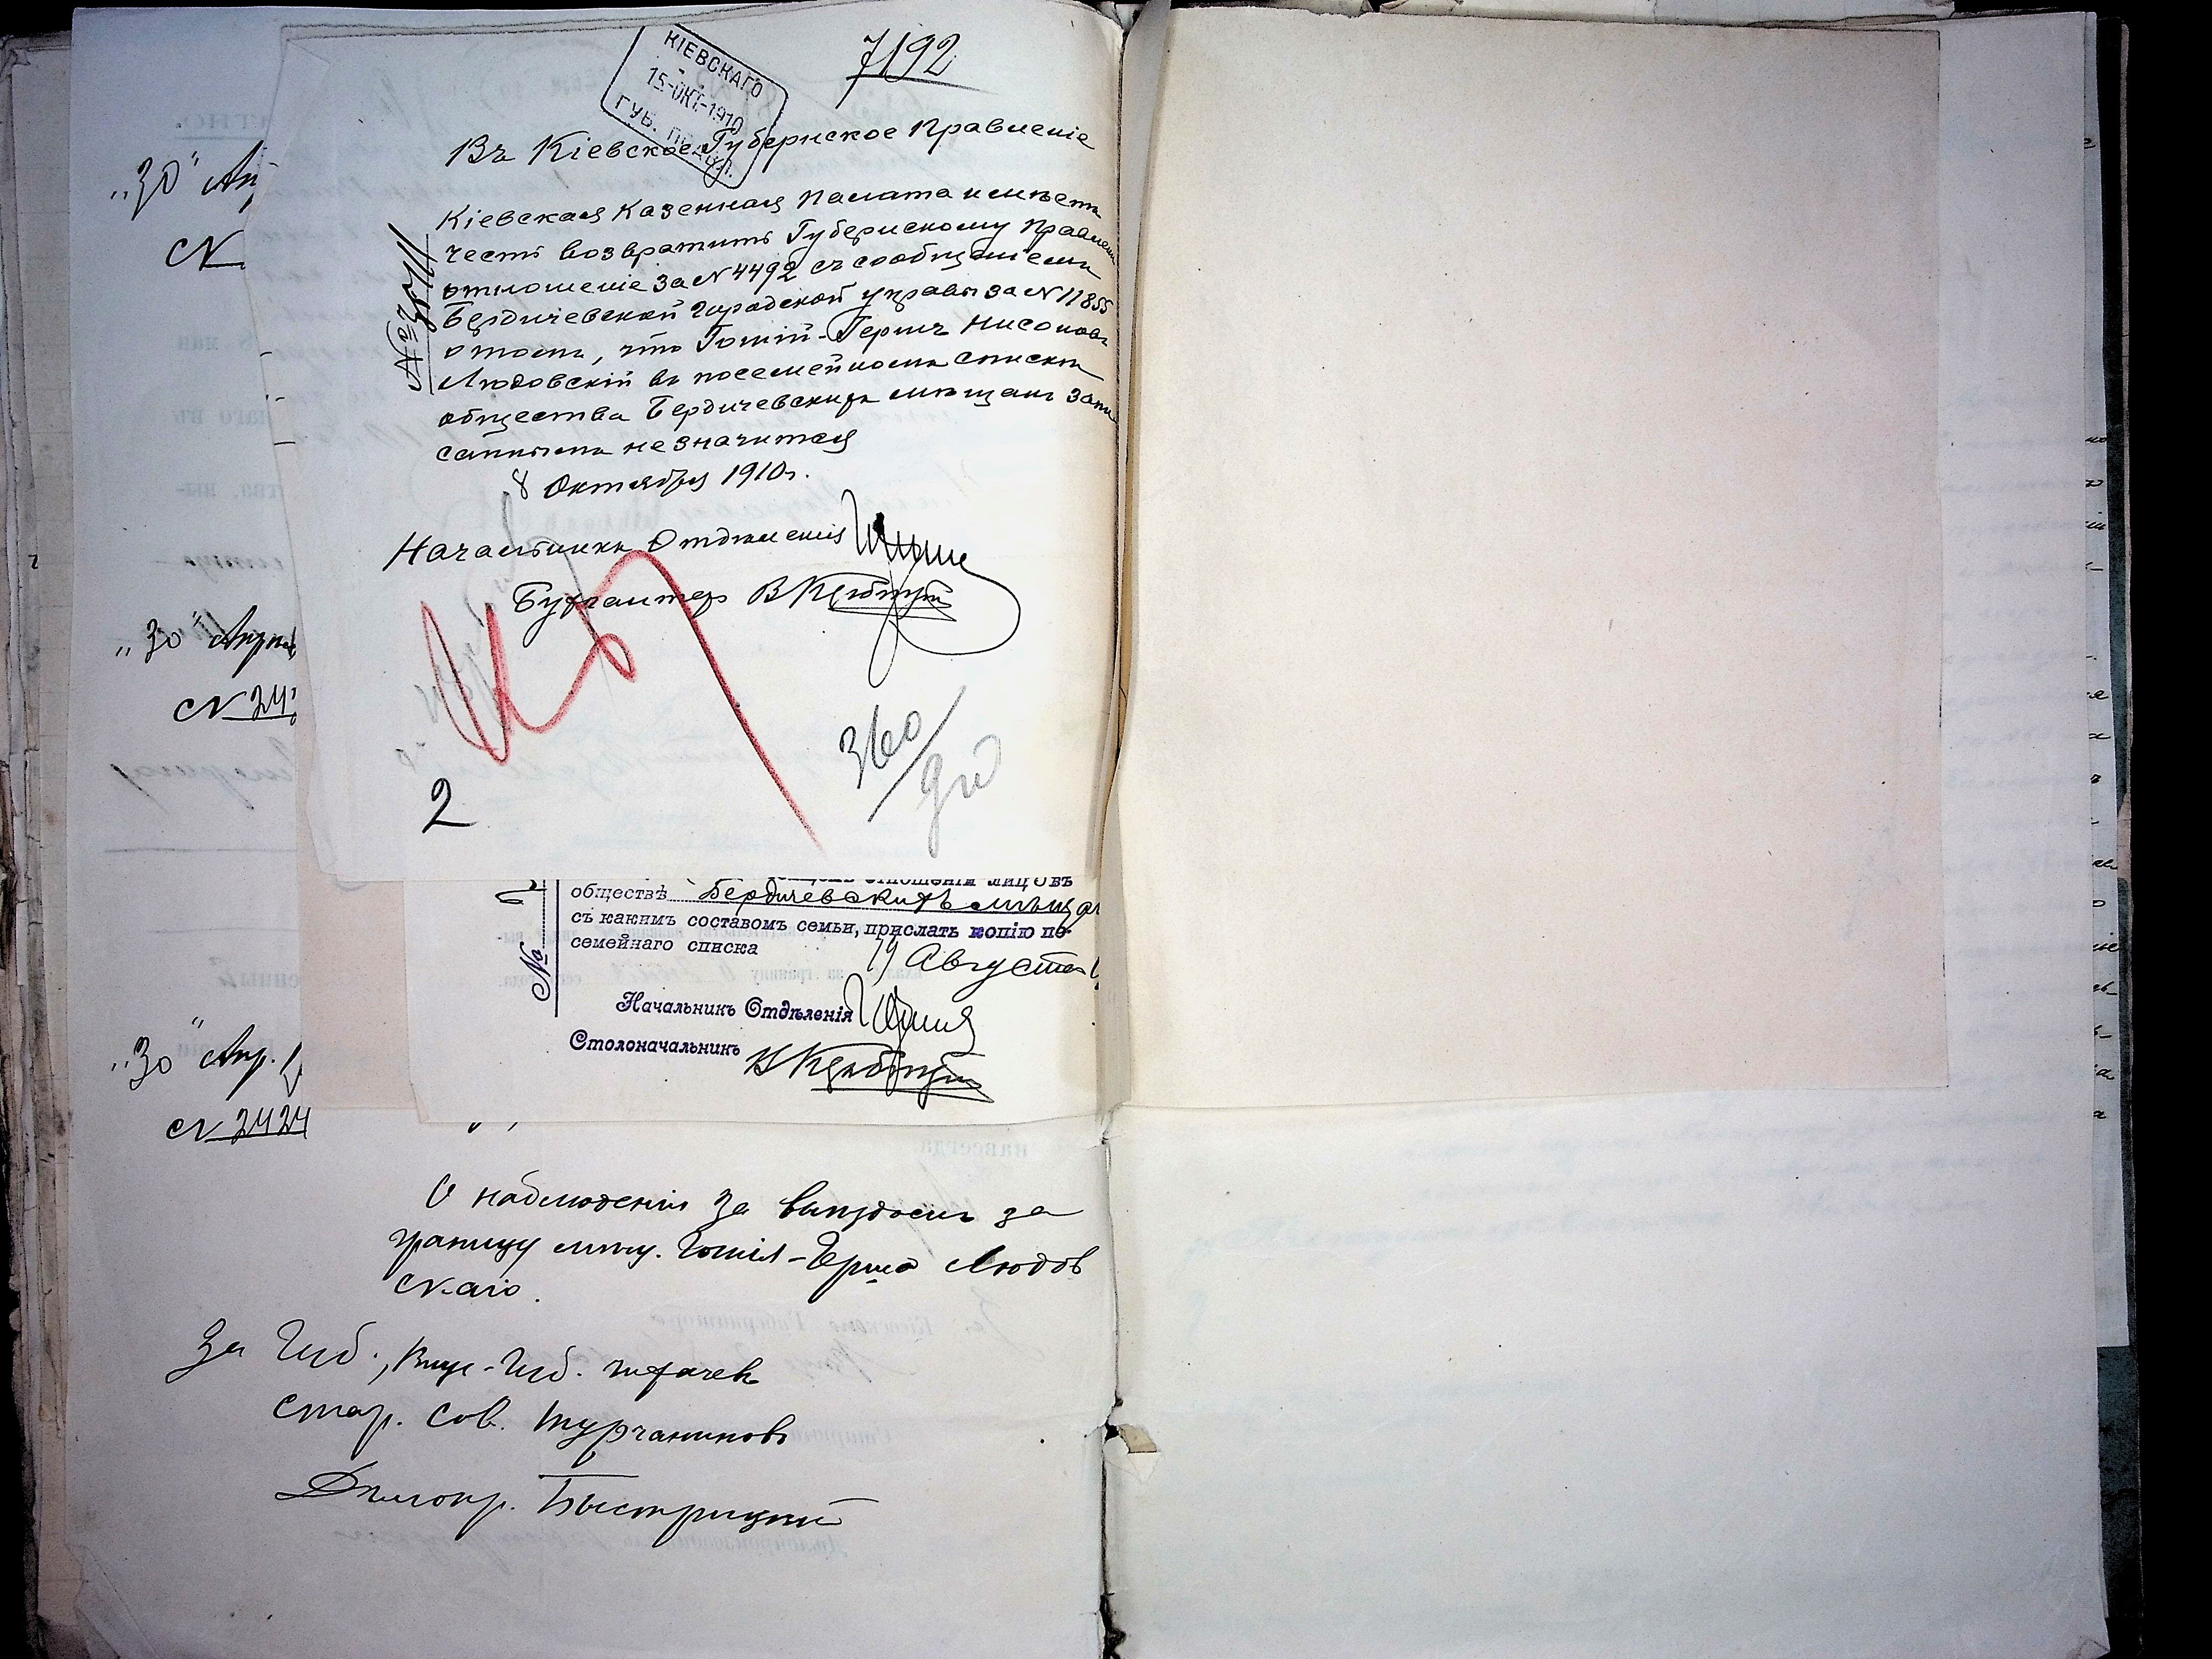 7192
КІЕВСКАГО
15-ОКТ-1910
ГУБ.
Въ Кіевское Губернское Правленіе
Кіевская Казенная Палата имѣетъ
честь возвратить Губернскому Правлен
отношеніе за N 4492 съ сообщеніемъ
Бердичевской городской управы за N 11855
о томъ, что Гошій-Гершъ Нисонов
Людовскій въ посемейномъ спискѣ
общества Бердичевскихъ мѣщанъ запи
саннымъ не значится
8 Октября 1910 г.
Начальникъ Отдѣленія
Бухгалтеръ
360
2
„30" Ап
N
„30" Апрѣл
N 242
„30" Апр. 1
N 2424
отношеніи лицо въ
обществѣ Бердичевскихъ мѣщан
съ какимъ составомъ семьи, прислать копію по-
семейнаго списка
19 Августа
№
Начальникъ Отдѣленія
Столоначальникъ
О наблюденіи за выѣздомъ за
границу мѣщ. Гошія-Герша Людов
скаго.
За Губ., Вице-Губ. Чихачевъ
Стар. Сов. Турчаниновъ
Дѣлопр. Быстрицкій